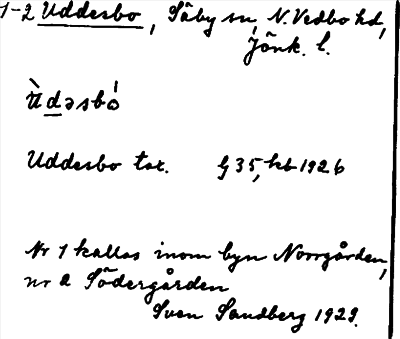 1-2 Uddesbo, Säby sn, N. Vedbo hd,
Jönk. l.
ùdəsbó
Uddesbo tax. Gj 35, kb 1926
Nr 1 kallas inom byn Norrgården,
nr 2 Södergården
Sven Sandberg 1929.